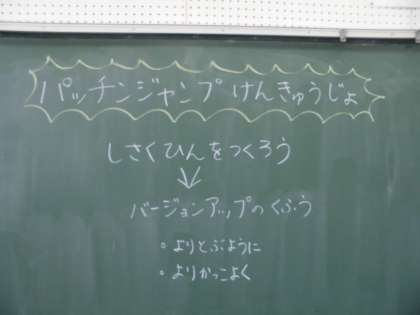 パッチンジャンプけんきゅうじょ
しさくひんをつくろう
↓
バージョンアップのくふう
。よりとぶように
。よりかっこよく